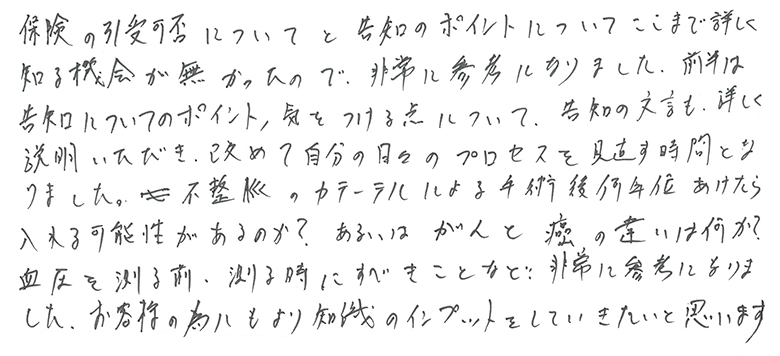 保険の引受可否についてと告知のポイントについてここまで詳しく
知る機会が無かったので、非常に参考になりました。前半は
告知についてのポイント，気をつける点について、告知の文言も、詳しく
説明いただき、改めて自分の日々のプロセスを見直す時間とな
りました。不整脈のカテーテルによる手術後何年位あけたら
入れる可能性があるのか？あるいはがんと癌の違いは何か？
血圧を測る前、測る時にすべきことなど：非常に参考になりま
した、お客様の為にもより知識のインプットをしていきたいと思います